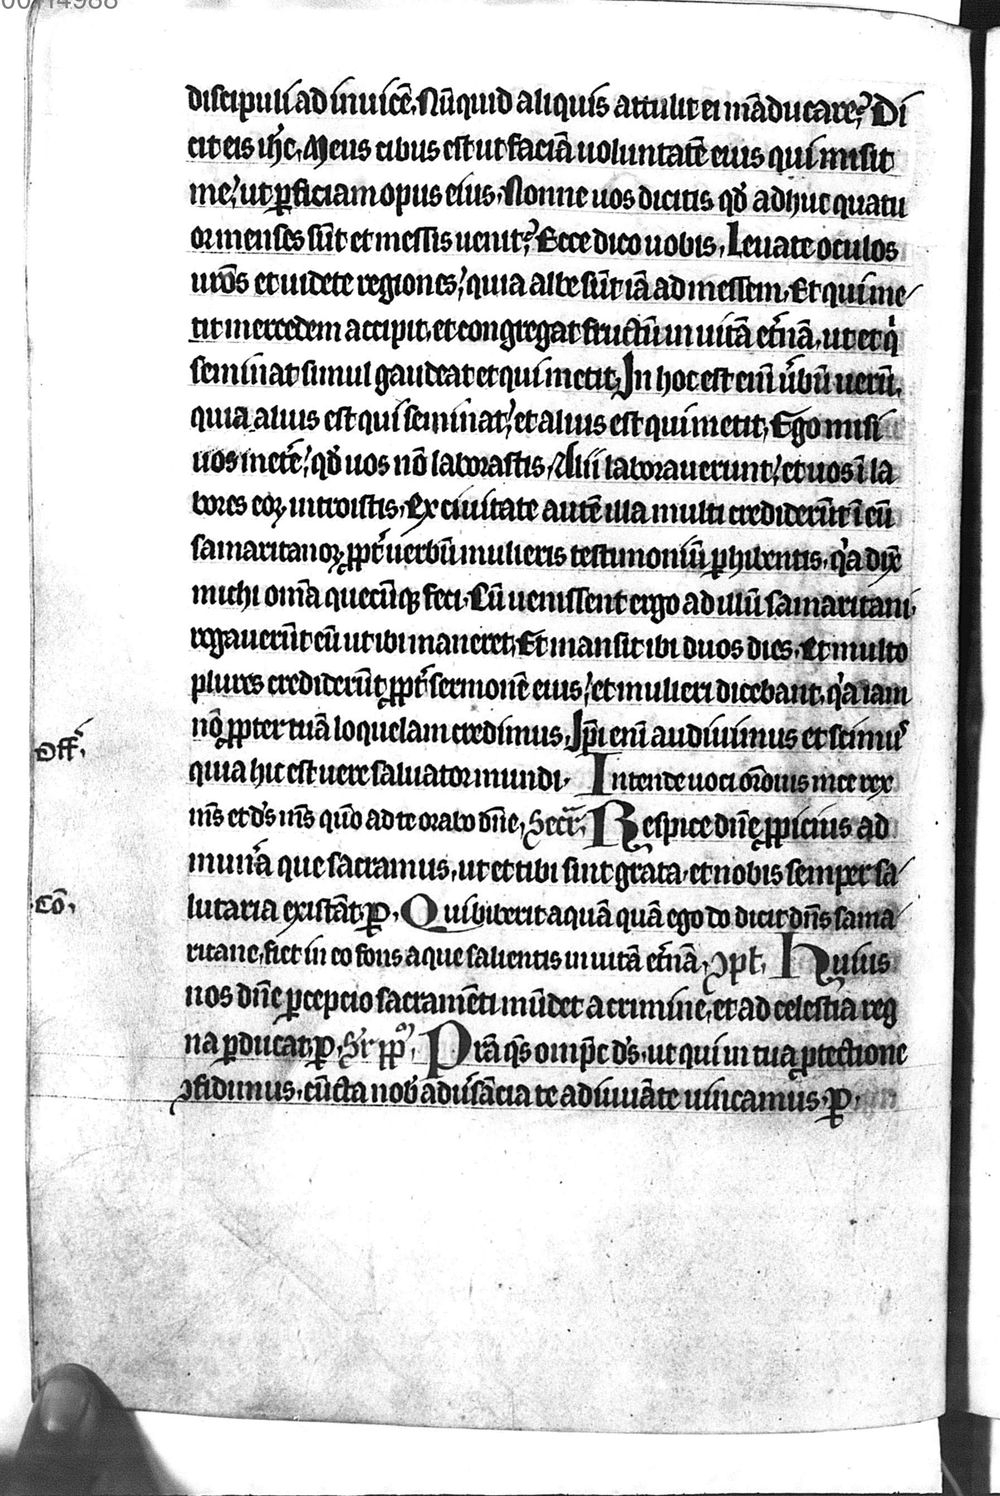 00114988
discipuli ad inuicē. Nūquid aliquis attulit ei māducare? Di
cit eis ih̄c. Meus cibus est ut faciā uoluntatē eius qui misit
me, ut ꝑficiam opus eius. Nonne uos dicitis qd̄ adhuc quatu
or menses sūt et messis uenit? Ecce dico uobis. Leuate oculos
ur̄os et uidete regiones, quia albe sūt iā ad messem. Et qui me
tit mercedem accipit, et congregat fructū in uitā et̄nā, ut et qͥ
seminat simul gaudeat et qui metit. In hoc est eni ūbū uerū,
quia alius est qui seminat, et alius est qui metit. Ego misi
uos met̄e, qd̄ uos nō laborastis. Alii laborauerunt, et uos ī la
bores eoꝝ introistis. Ex ciuitate autē illa multi crediderūt ī eū
samaritanoꝝ ꝓpt̄ uerbū mulieris testimoniū ꝑhibentis, qͣa dix̄
michi om̄a quecūqꝫ feci. Cū uenissent ergo ad illū samaritani,
rogauerūt eū ut ibi maneret. Et mansit ibi duos dies. Et multo
plures crediderūt ꝓpt̄ sermonē eius, et mulieri dicebant, qͣa iam
nō ꝓpter tuā loquelam credimus. Ip̄i eni audiuimus et scimuˢ
Off̄
quia hic est uere saluator mundi. Intende uoci or̄onis mee rex
m̄s et d̄s m̄s qm̄ ad te orabo dn̄e. Secr̄. Respice dn̄e ꝓpicius ad
mun̄a que sacramus, ut et tibi sint grata, et nobis semper sa
Cō.
lutaria existāt. ꝑ. Qui biberit aquā quā ego do dicit dn̄s sama
ritane, fiet in eo fons aque salientis in uitā et̄nā. ꝯpł. Huius
nos dn̄e ꝑcepcio sacramēti mūdet a crimine, et ad celestia reg
na ꝑducat. ꝑ. Sr̄ ppͫ. Pr̄a qs̄ omp̄c d̄s, ut qui in tua ꝓtectione
ꝯfidimus, cūcta nob̄ aduˢācia te adiuuāte uincamus. ꝑ.